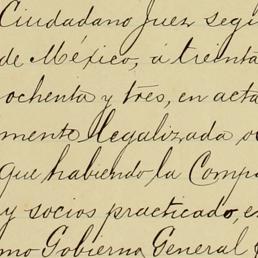 Ciudadano Juez segu
de México, á treinta
ochenta y tres, en acta
mente legalizada o
que habiendo la Comp
y socios practicado, e
mo Gobierno General